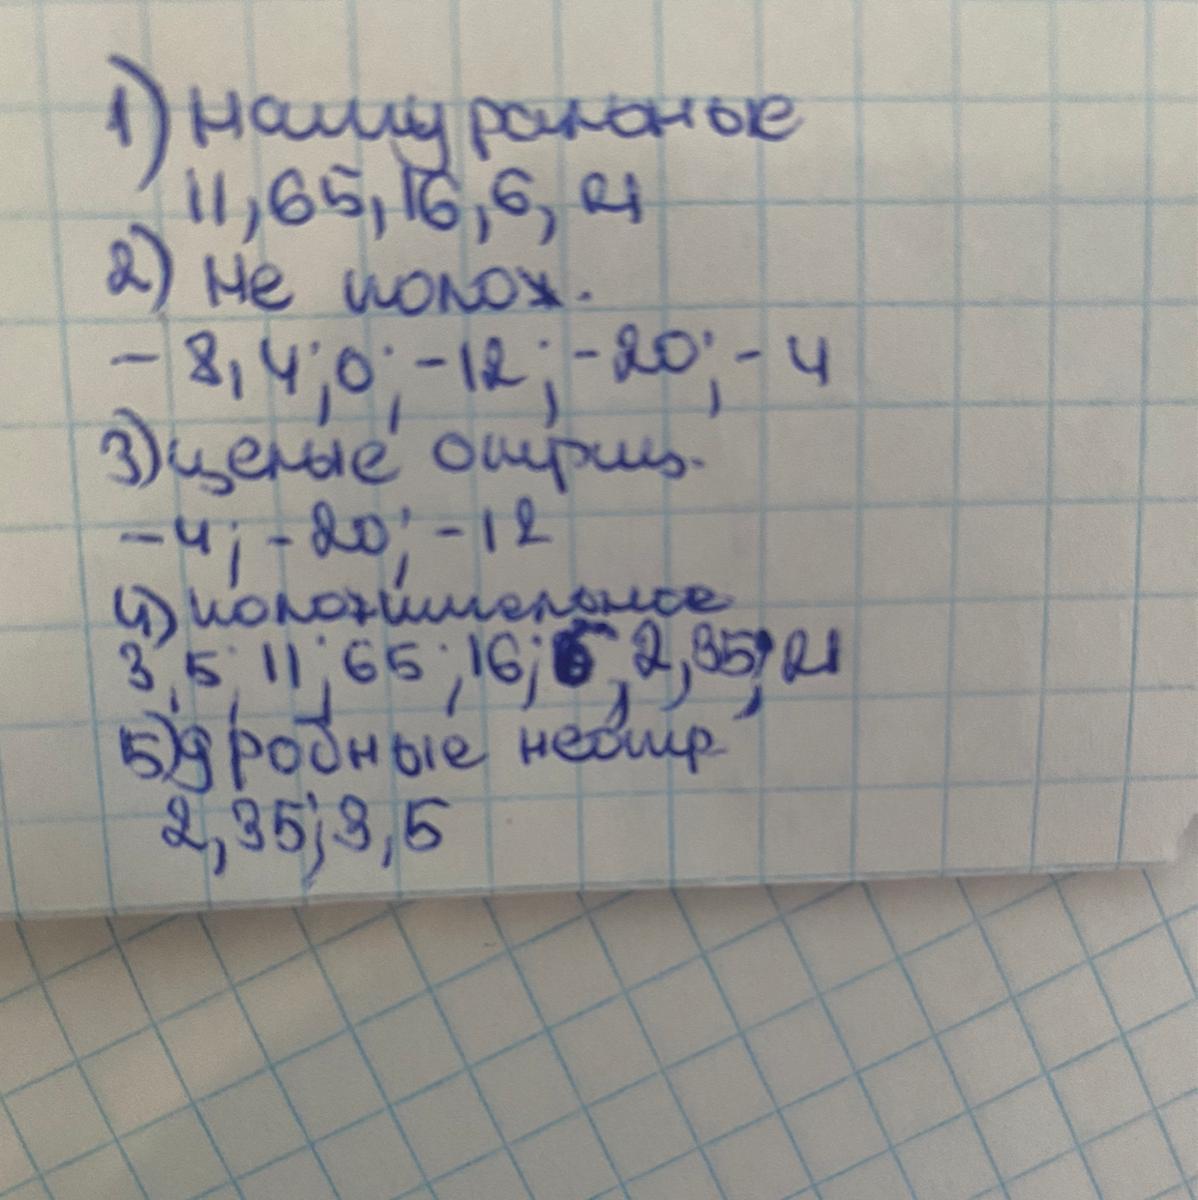 1) Натуральные
11, 65, 16, 6, 21
2) Не полож.
- 8,4; 0; -12; -20; - 4
3) целые отриц.
-4; -20; -12
4) положительные
3,5; 11; 65; 16; 6; 2,35; 21
5) дробные неотр
2,35; 3,5